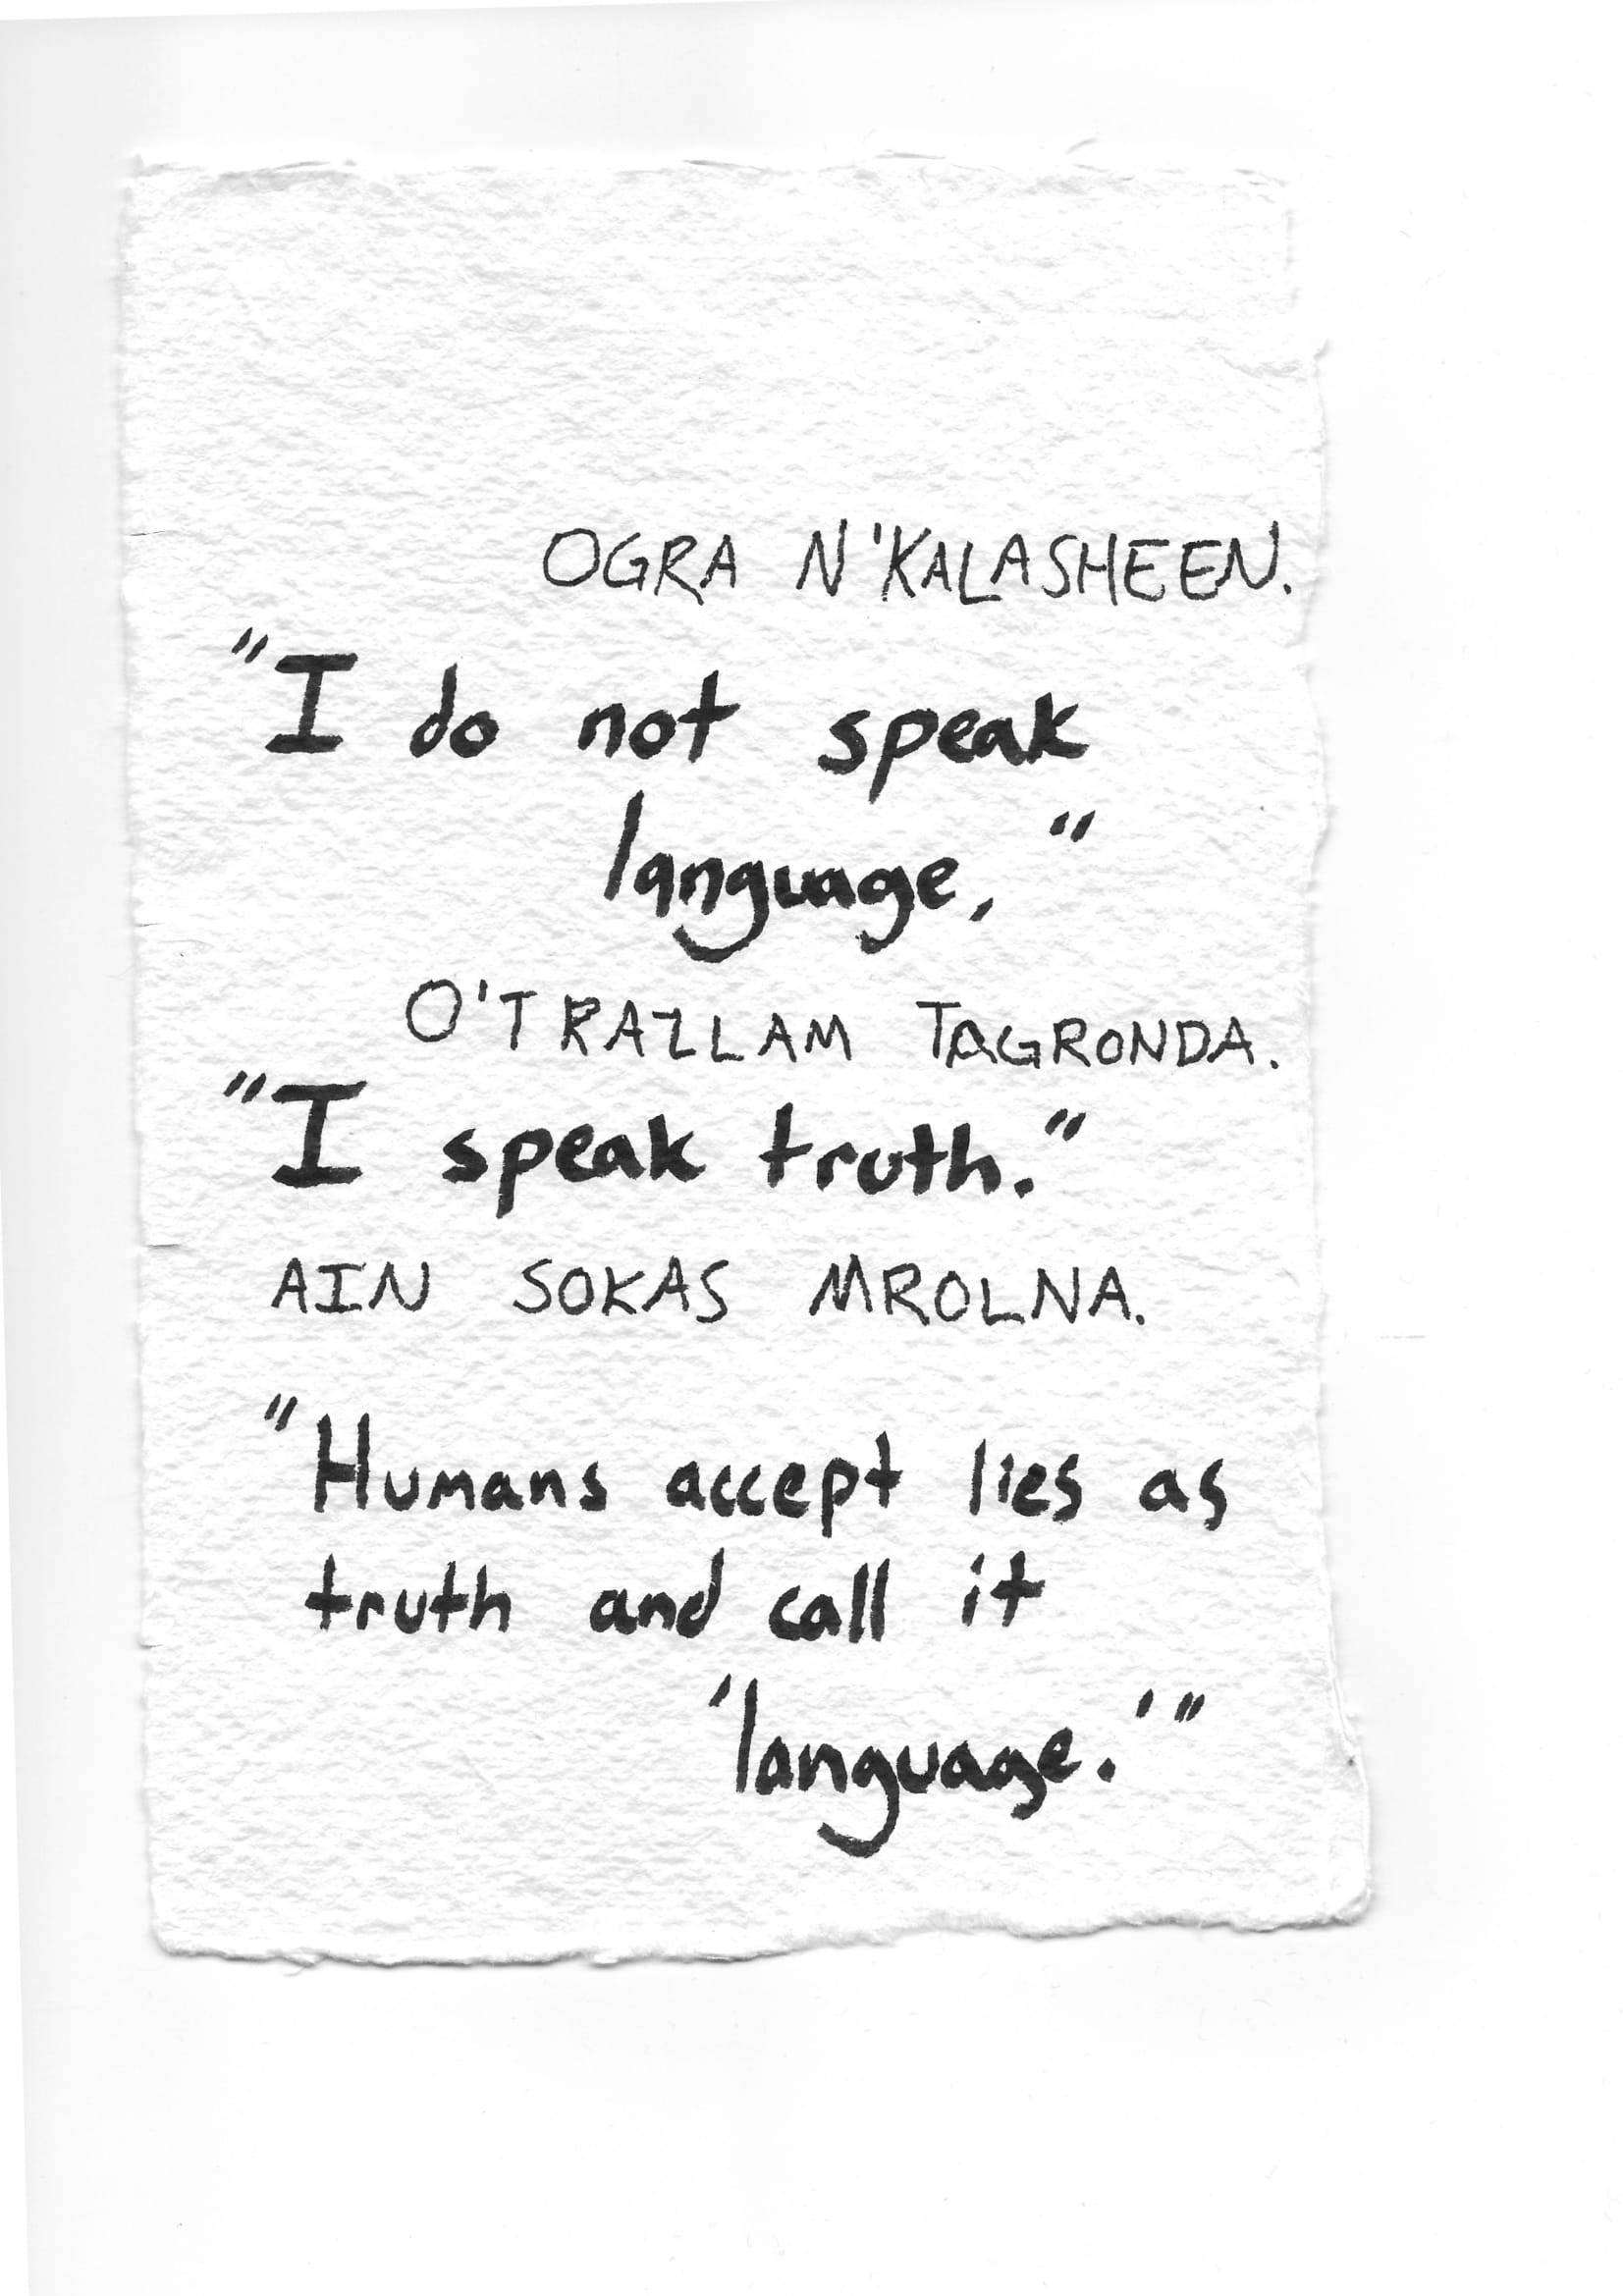 OGRA N'KALASHEEN.
"I do not speak
language."
O'TRAZLLAM TAGRONDA.
"I speak truth."
AIN SOKAS MROLNA.
"Humans accept lies as
truth and call it
'language.'"